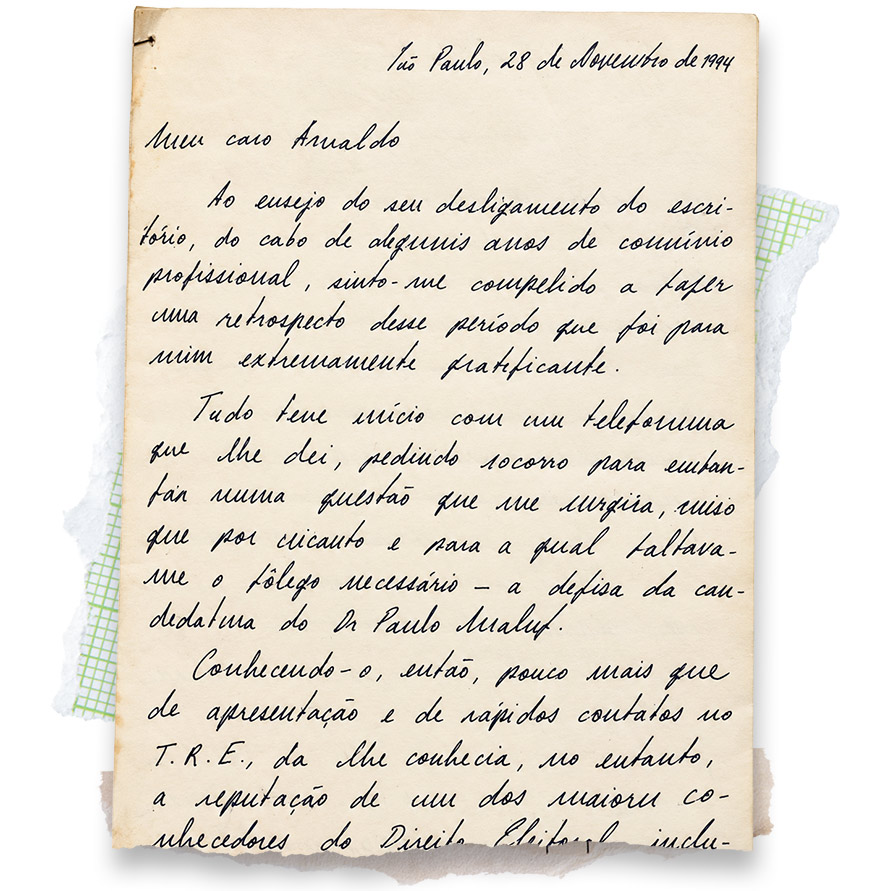 São Paulo, 28 de Novembro de 1994
Meu caro Arnaldo
Ao ensejo do seu desligamento do escri-
tório, do cabo de alguns anos de convívio
profissional, sinto-me compelido a fazer
uma retrospecto desse período que foi para
mim extremamente gratificante.
Tudo teve início com um telefonema
que lhe dei, pedindo socorro para enfren-
tar numa questão que me surgira,
que por encanto e para a qual faltava-
me o fôlego necessário — a defesa da can-
didatura do Dr Paulo Maluf.
Conhecendo-o, então, pouco mais que
de apresentação e de rápidos contatos no
T.R.E., da lhe conhecia, no entanto,
a reputação de um dos maiores co-
nhecedores do Direito Eleitoral, inclu-